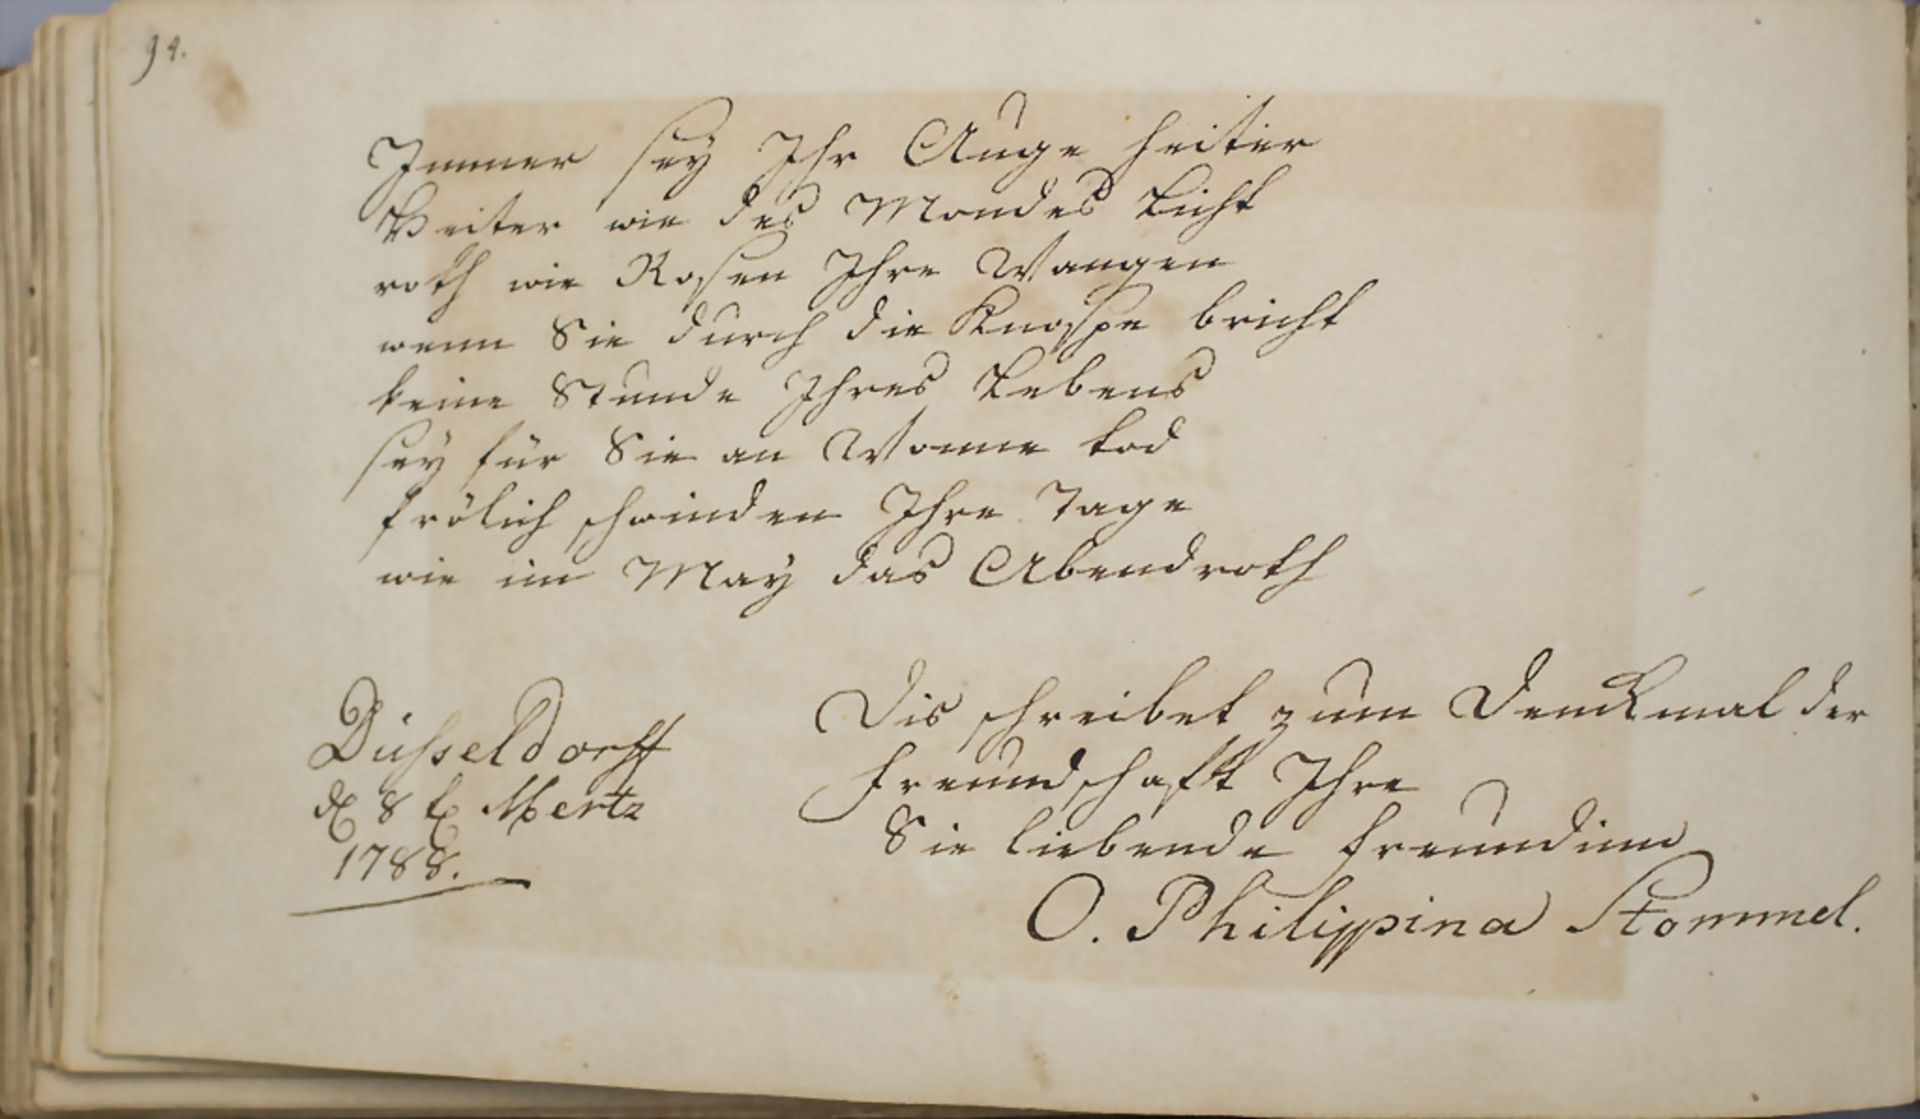 94.
Immer sey Ihr Auge heiter
Heiter wie des Mondes Licht
roth wie Rosen Ihre Wangen
wenn Sie durch die Knospe bricht
keine Stunde Ihres Lebens
sey für Sie an Wonne tod
frölich schwinden Ihre Tage
wie im May das Abendroth
Dis schreibet zum Denckmal der
Freundschaft Ihre
Sie liebende Freundinn
O. Philippina Stommel.
Düsseldorff
d 8 t Mertz
1788.